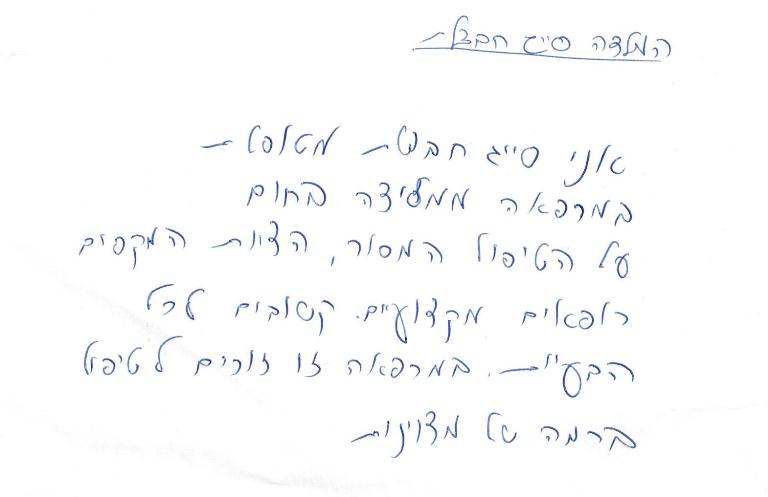 המלצה סייג חבצלת
אני סייג חבצלת מטופלת
במרפאה ממליצה בחום
על הטיפול המסור, הצוות המקסים
רופאים מקצועיים. קשובים לכל
הבעיות. במרפאה זו זוכים לטיפול
ברמה של מצוינות